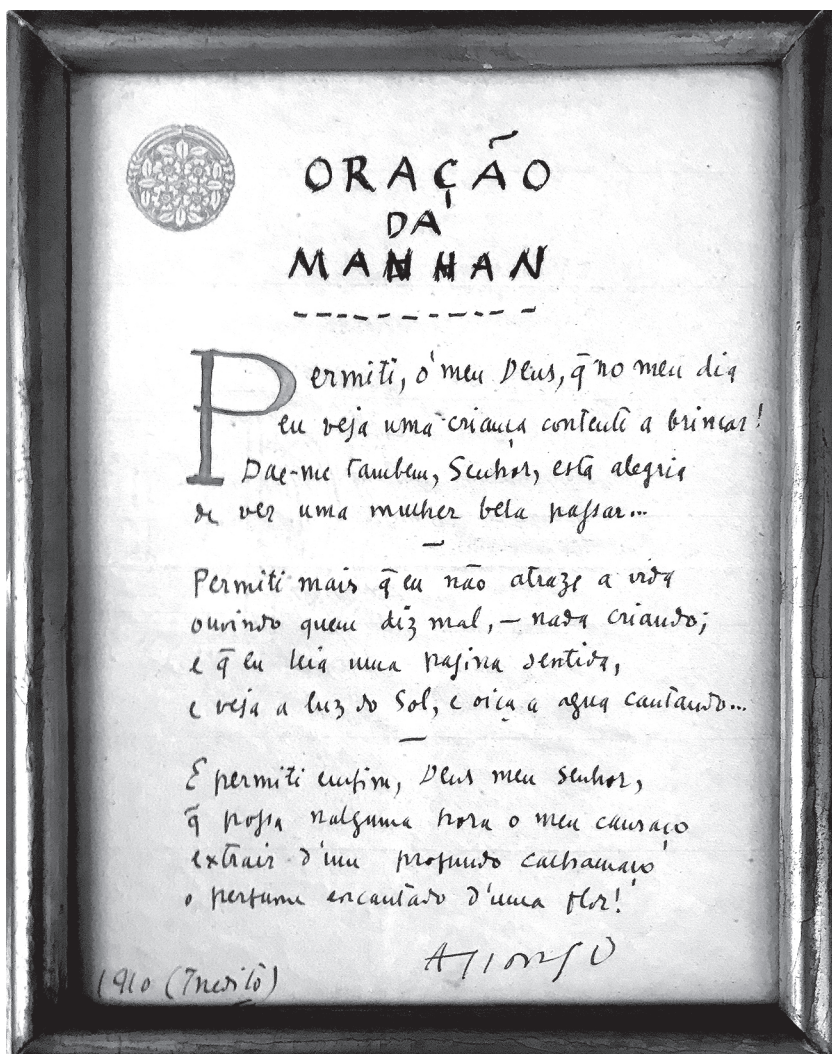 ORAÇÃO
DA
MANHAN
Permiti, ó meu Deus, q̃ no meu dia
eu veja uma criança contente a brincar!
Dae-me tambem, Senhor, esta alegria
de ver uma mulher bela passar...
—
Permiti mais q̃ eu não atraze a vida
ouvindo quem diz mal, — nada criando;
e q̃ eu leia uma pagina sentida,
e veja a luz do Sol, e oiça a agua cantando...
—
E permiti emfim, Deus meu Senhor,
q̃ possa nalguma hora o meu cansaço
extrair d'um profundo calhamaço
o perfume encantado d'uma flor!
Afonso
1910 (Inedito)